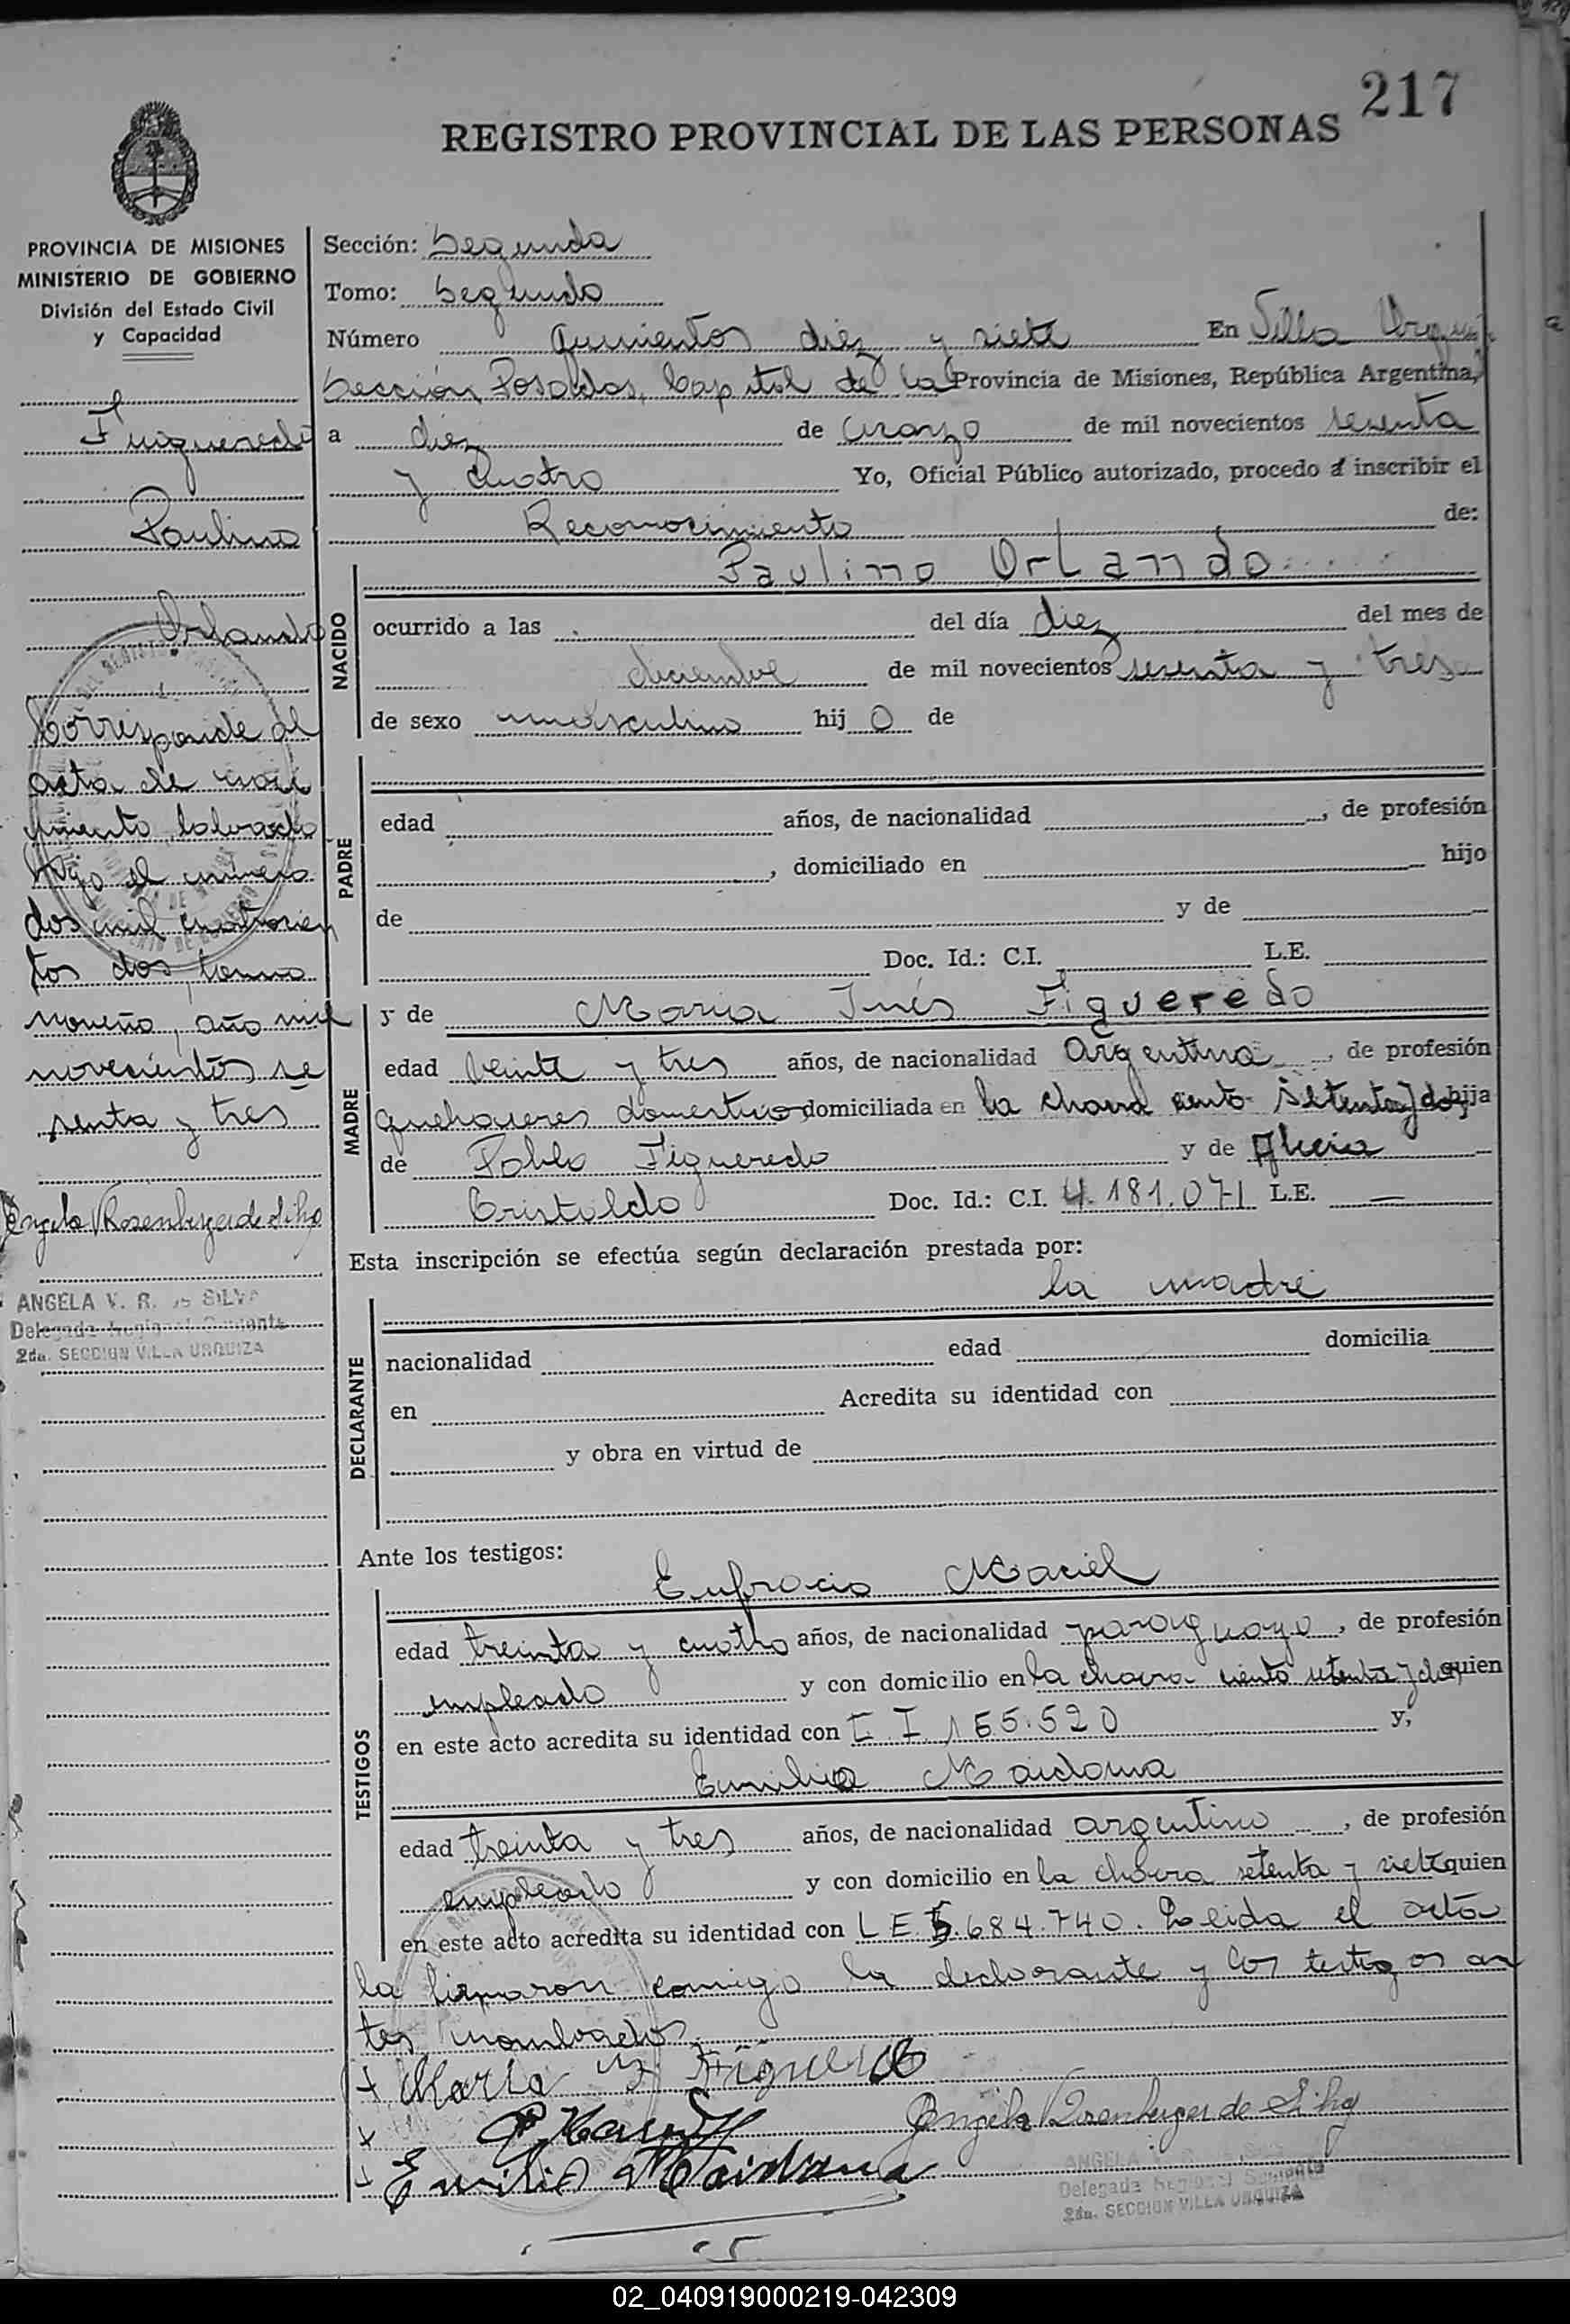 217
REGISTRO PROVINCIAL DE LAS PERSONAS
PROVINCIA DE MISIONES
MINISTERIO DE GOBIERNO
División del Estado Civil
y Capacidad
Figueredo
Paulino
Orlando
Corresponde al
acta de naci
miento labrada
bajo el número
dos mil cuatrocien
tos dos, tomo
noveno, año mil
novecientos se
senta y tres
Angela V. Rosenberger de Silva
ANGELA V. R. DE SILVA
Delegada Regional Suplente
2da. SECCION VILLA URQUIZA
Sección: Segunda
Tomo: Segundo
Número quinientos diez y siete En Villa Urquiza
Sección Posadas, Capital de la Provincia de Misiones, República Argentina,
a diez de Marzo de mil novecientos sesenta
y cuatro Yo, Oficial Público autorizado, procedo a inscribir el
Reconocimiento de:
NACIDO
Paulino Orlando
ocurrido a las del día diez del mes de
diciembre de mil novecientos sesenta y tres
de sexo masculino hijo de
PADRE
edad años, de nacionalidad , de profesión
, domiciliado en hijo
de y de
Doc. Id.: C.I. L.E.
MADRE
y de Maria Inés Figueredo
edad veinte y tres años, de nacionalidad Argentina , de profesión
quehaceres domesticos domiciliada en la chacra ciento setenta y dos hija
de Pablo Figueredo y de Alicia
Cristaldo Doc. Id.: C.I. 4.181.071 L.E. —
Esta inscripción se efectúa según declaración prestada por:
la madre
DECLARANTE
nacionalidad edad domicilia
en Acredita su identidad con
y obra en virtud de
Ante los testigos:
TESTIGOS
Eufracio Maciel
edad treinta y cuatro años, de nacionalidad paraguayo, de profesión
empleado y con domicilio en la chacra ciento setenta y dos quien
en este acto acredita su identidad con C.I. 155.520 y,
Emilio Maidana
edad treinta y tres años, de nacionalidad argentino , de profesión
empleado y con domicilio en la chacra setenta y siete quien
en este acto acredita su identidad con LE 5.684.740. Leida el acta
la firmaron conmigo la declarante y los testigos an
tes nombrados
x Maria I Figueredo
x
x Emilio Maidana
Angela V Rosenberger de Silva
ANGELA V. R. DE SILVA
Delegada Regional Suplente
2da. SECCION VILLA URQUIZA
02_040919000219-042309